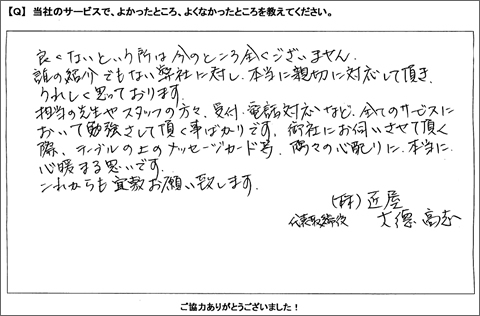 【Q】 当社のサービスで、よかったところ、よくなかったところを教えてください。
良くないという所は今のところ全くございません。
誰の紹介でもない弊社に対し、本当に親切に対応して頂き、
うれしく思っております。
担当の先生やスタッフの方々、受付、電話対応など、全てのサービスに
おいて勉強させて頂く事ばかりです。御社にお伺いさせて頂く
際、テーブルの上のメッセージカード等、隅々の心配りに、本当に
心暖まる思いです。
これからも宜敷お願い致します。
(株) 匠屋
代表取締役 大徳 高志
ご協力ありがとうございました！